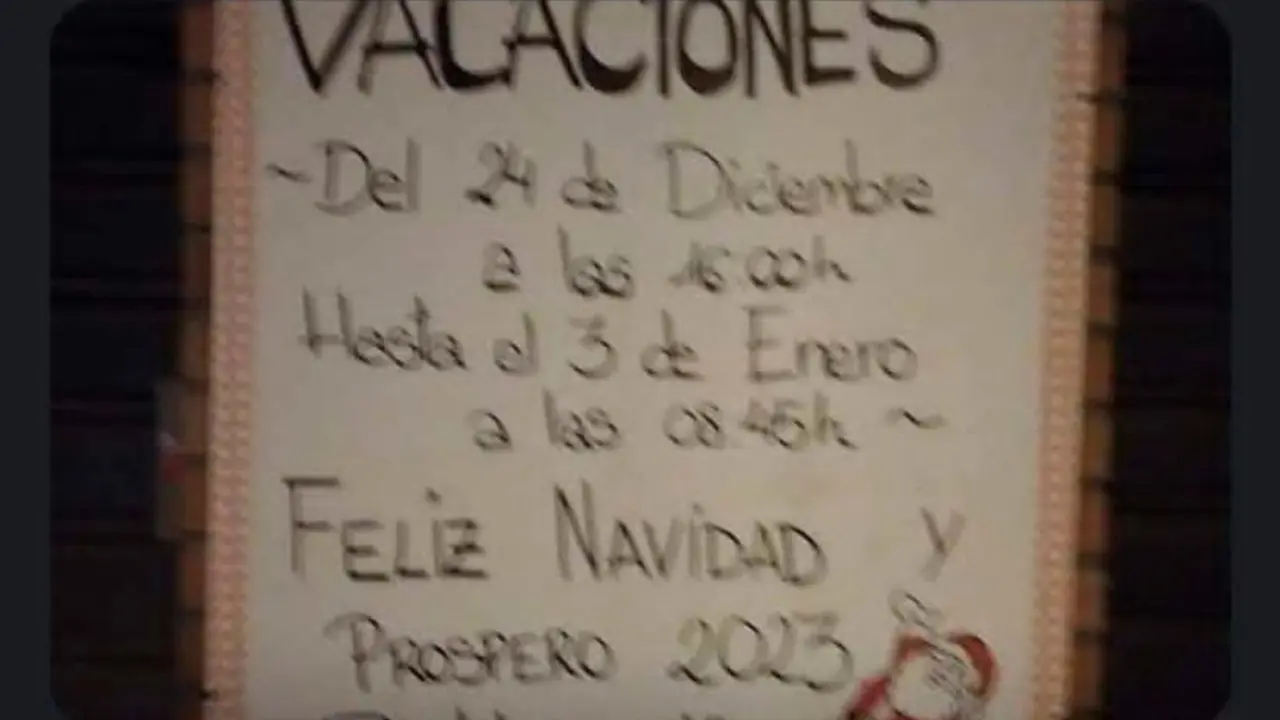 VACACIONES
~Del 24 de Diciembre
a las 16:00h
Hasta el 3 de Enero
a las 08:45h ~
FELIZ NAVIDAD y
PROSPERO 2023